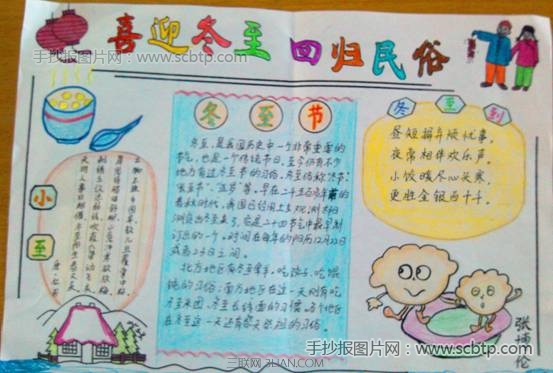 喜迎冬至 回归民俗
手抄报图片网：www.scbtp.com
冬至节
冬至，是我国历史中一个非常重要的
节气，也是一个传统节日，至今仍有不少
地方有过冬至节的习俗。冬至俗称"冬节"、
"长至节"、"亚岁"等。早在二千五百多年前的
春秋时代，我国已经用土圭观测太阳
测定出冬至来了，它是二十四节气中最早制
订出的一个，时间在每年的阳历12月22日
或者23日之间。
北方地区有冬至宰羊，吃饺子、吃馄
饨的习俗，南方地区在这一天则有吃
冬至米团、冬至长线面的习惯。各个地区
在冬至这一天还有祭天祭祖的习俗。
冬至到
昼短捐弃烦忧事，
夜常相伴欢乐声。
小饺暖尽心头寒，
更胜金银百十千。
小至
天时人事日相催 冬至阳生春又来
刺绣五纹添弱线 吹葭六管动飞灰
唐·杜甫
手抄报图片网：www.scbtp.com
三联网 3LIAN.COM